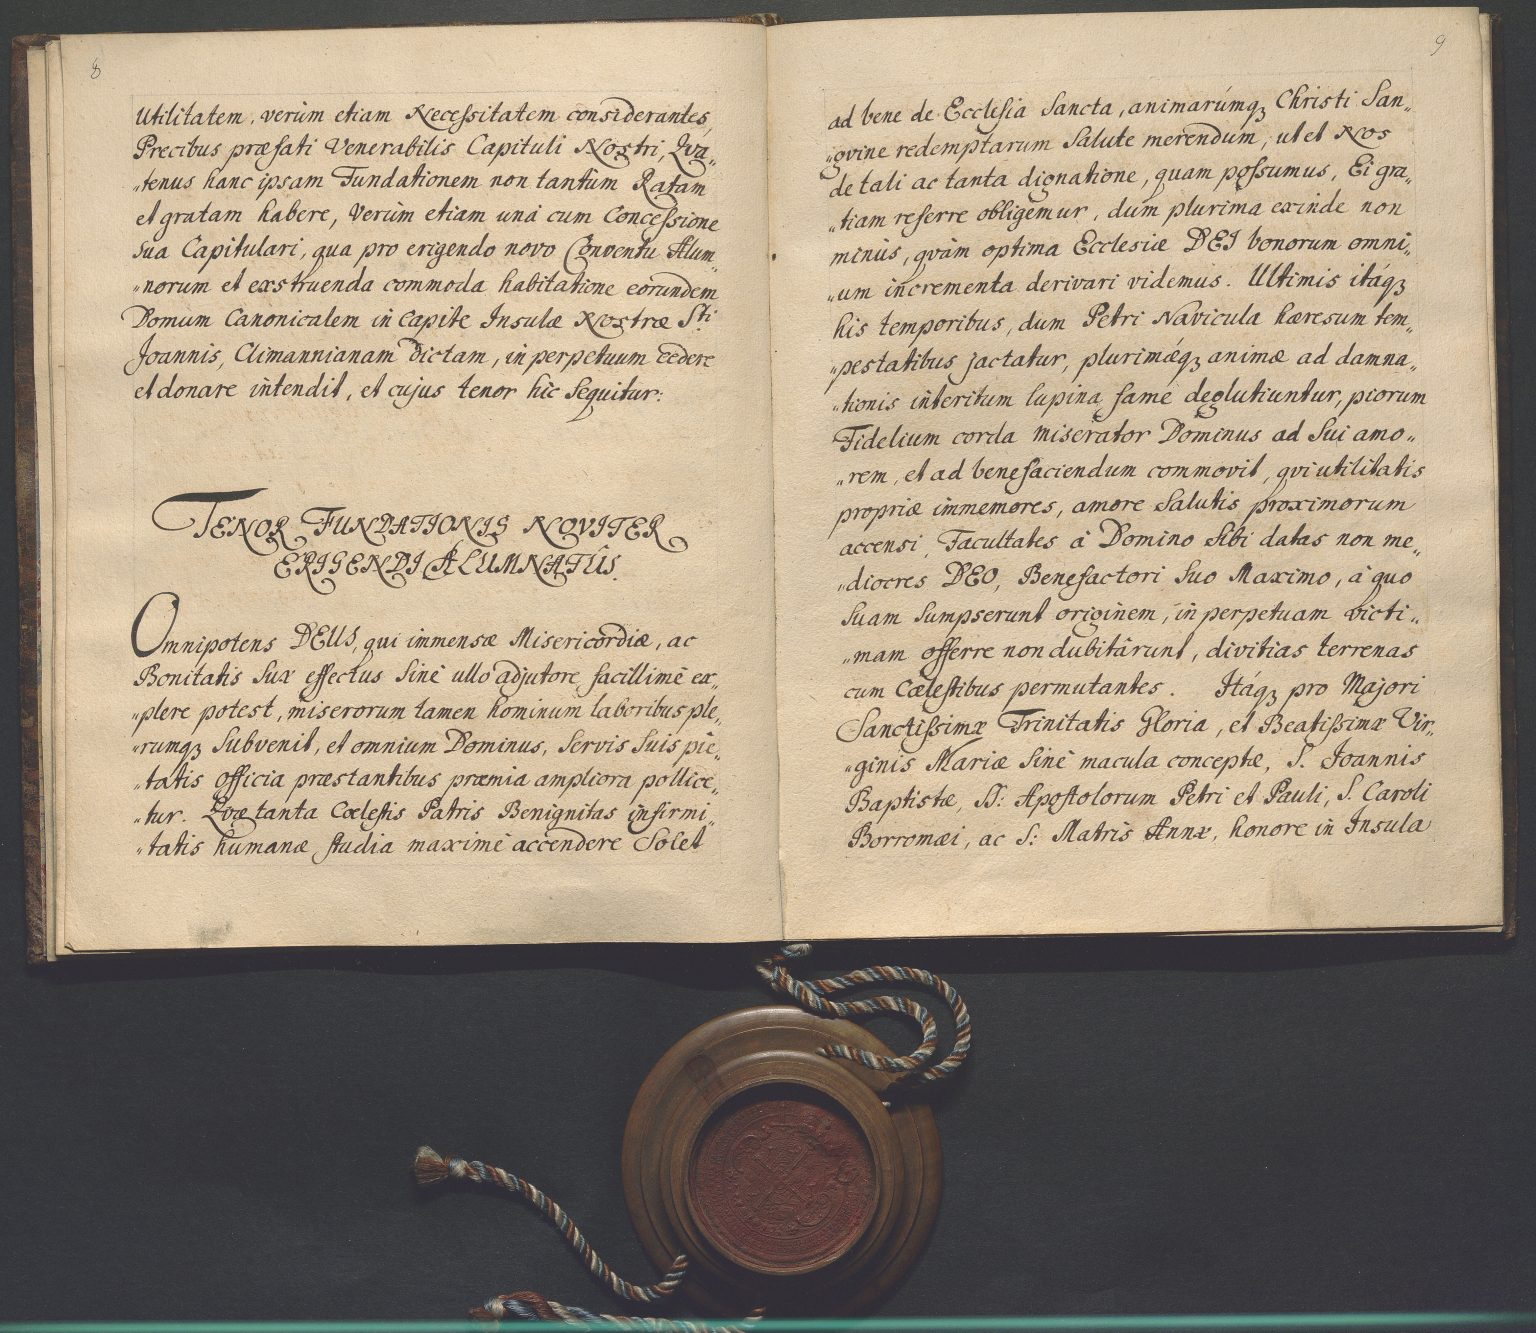 8
Utilitatem, verùm etiam Necessitatem considerantes,
Precibus præfati Venerabilis Capituli Nostri, Qva„
„tenus hanc ipsam Fundationem non tantùm Ratam
et gratam habere, Verùm etiam unà cum Concessione
sua Capitulari, qua pro erigendo novo Conventu Alum„
„norum et exstruenda commoda habitatione eorundem
Domum Canonicalem in Capite Insulæ Nostræ Sti
Joannis, Climannianam dictam, in perpetuum cedere
et donare intendit, et cujus tenor hic Sequitur:
TENOR FUNDATIONIS NOVITER
ERIGENDI ALUMNATÛS.
Omnipotens DEUS, qui immensæ Misericordiæ, ac
Bonitatis Suæ effectus Sinè ullo adjutore facillimè ex„
„plere potest, miserorum tamen hominum laboribus ple„
„rumqꝫ Subvenit, et omnium Dominus, Servis Suis pie„
„tatis officia præstantibus præmia ampliora pollice„
„tur. Qvæ tanta Cœlestis Patris Benignitas infirmi„
„tatis humanæ studia maximè accendere Solet
9
ad bene de Ecclesia Sancta, animarúmqꝫ Christi San„
„gvine redemptarum Salute merendum, ut et Nos
de tali ac tanta dignatione, quam possumus, Ei gra„
„tiam referre obligemur, dum plurima exinde non
minùs, qvàm optima Ecclesiæ DEI bonorum omni„
„um incrementa derivari videmus. Ultimis itáqꝫ
his temporibus, dum Petri Navicula hæresum tem„
„pestatibus jactatur, plurimǽqꝫ animæ ad damna„
„tionis interitum lupina fame deglutiuntur, piorum
Fidelium corda Miserator Dominus ad Sui amo„
„rem, et ad benefaciendum commovit, qvi utilitatis
propriæ immemores, amore Salutis proximorum
accensi, Facultates à Domino Sibi datas non me„
„diocres DEO, Benefactori Suo Maximo, à quo
Suam Sumpserunt originem, in perpetuam victi„
„mam offerre non dubitârunt, divitias terrenas
cum Cœlestibus permutantes. Itáqꝫ pro Majori
Sanctissimæ Trinitatis Gloria, et Beatissimæ Vir„
„ginis Mariæ Sinè macula conceptæ, S. Joannis
Baptistæ, SS: Apostolorum Petri et Pauli, S. Caroli
Borromæi, ac S: Matris Annæ, honore in Insula